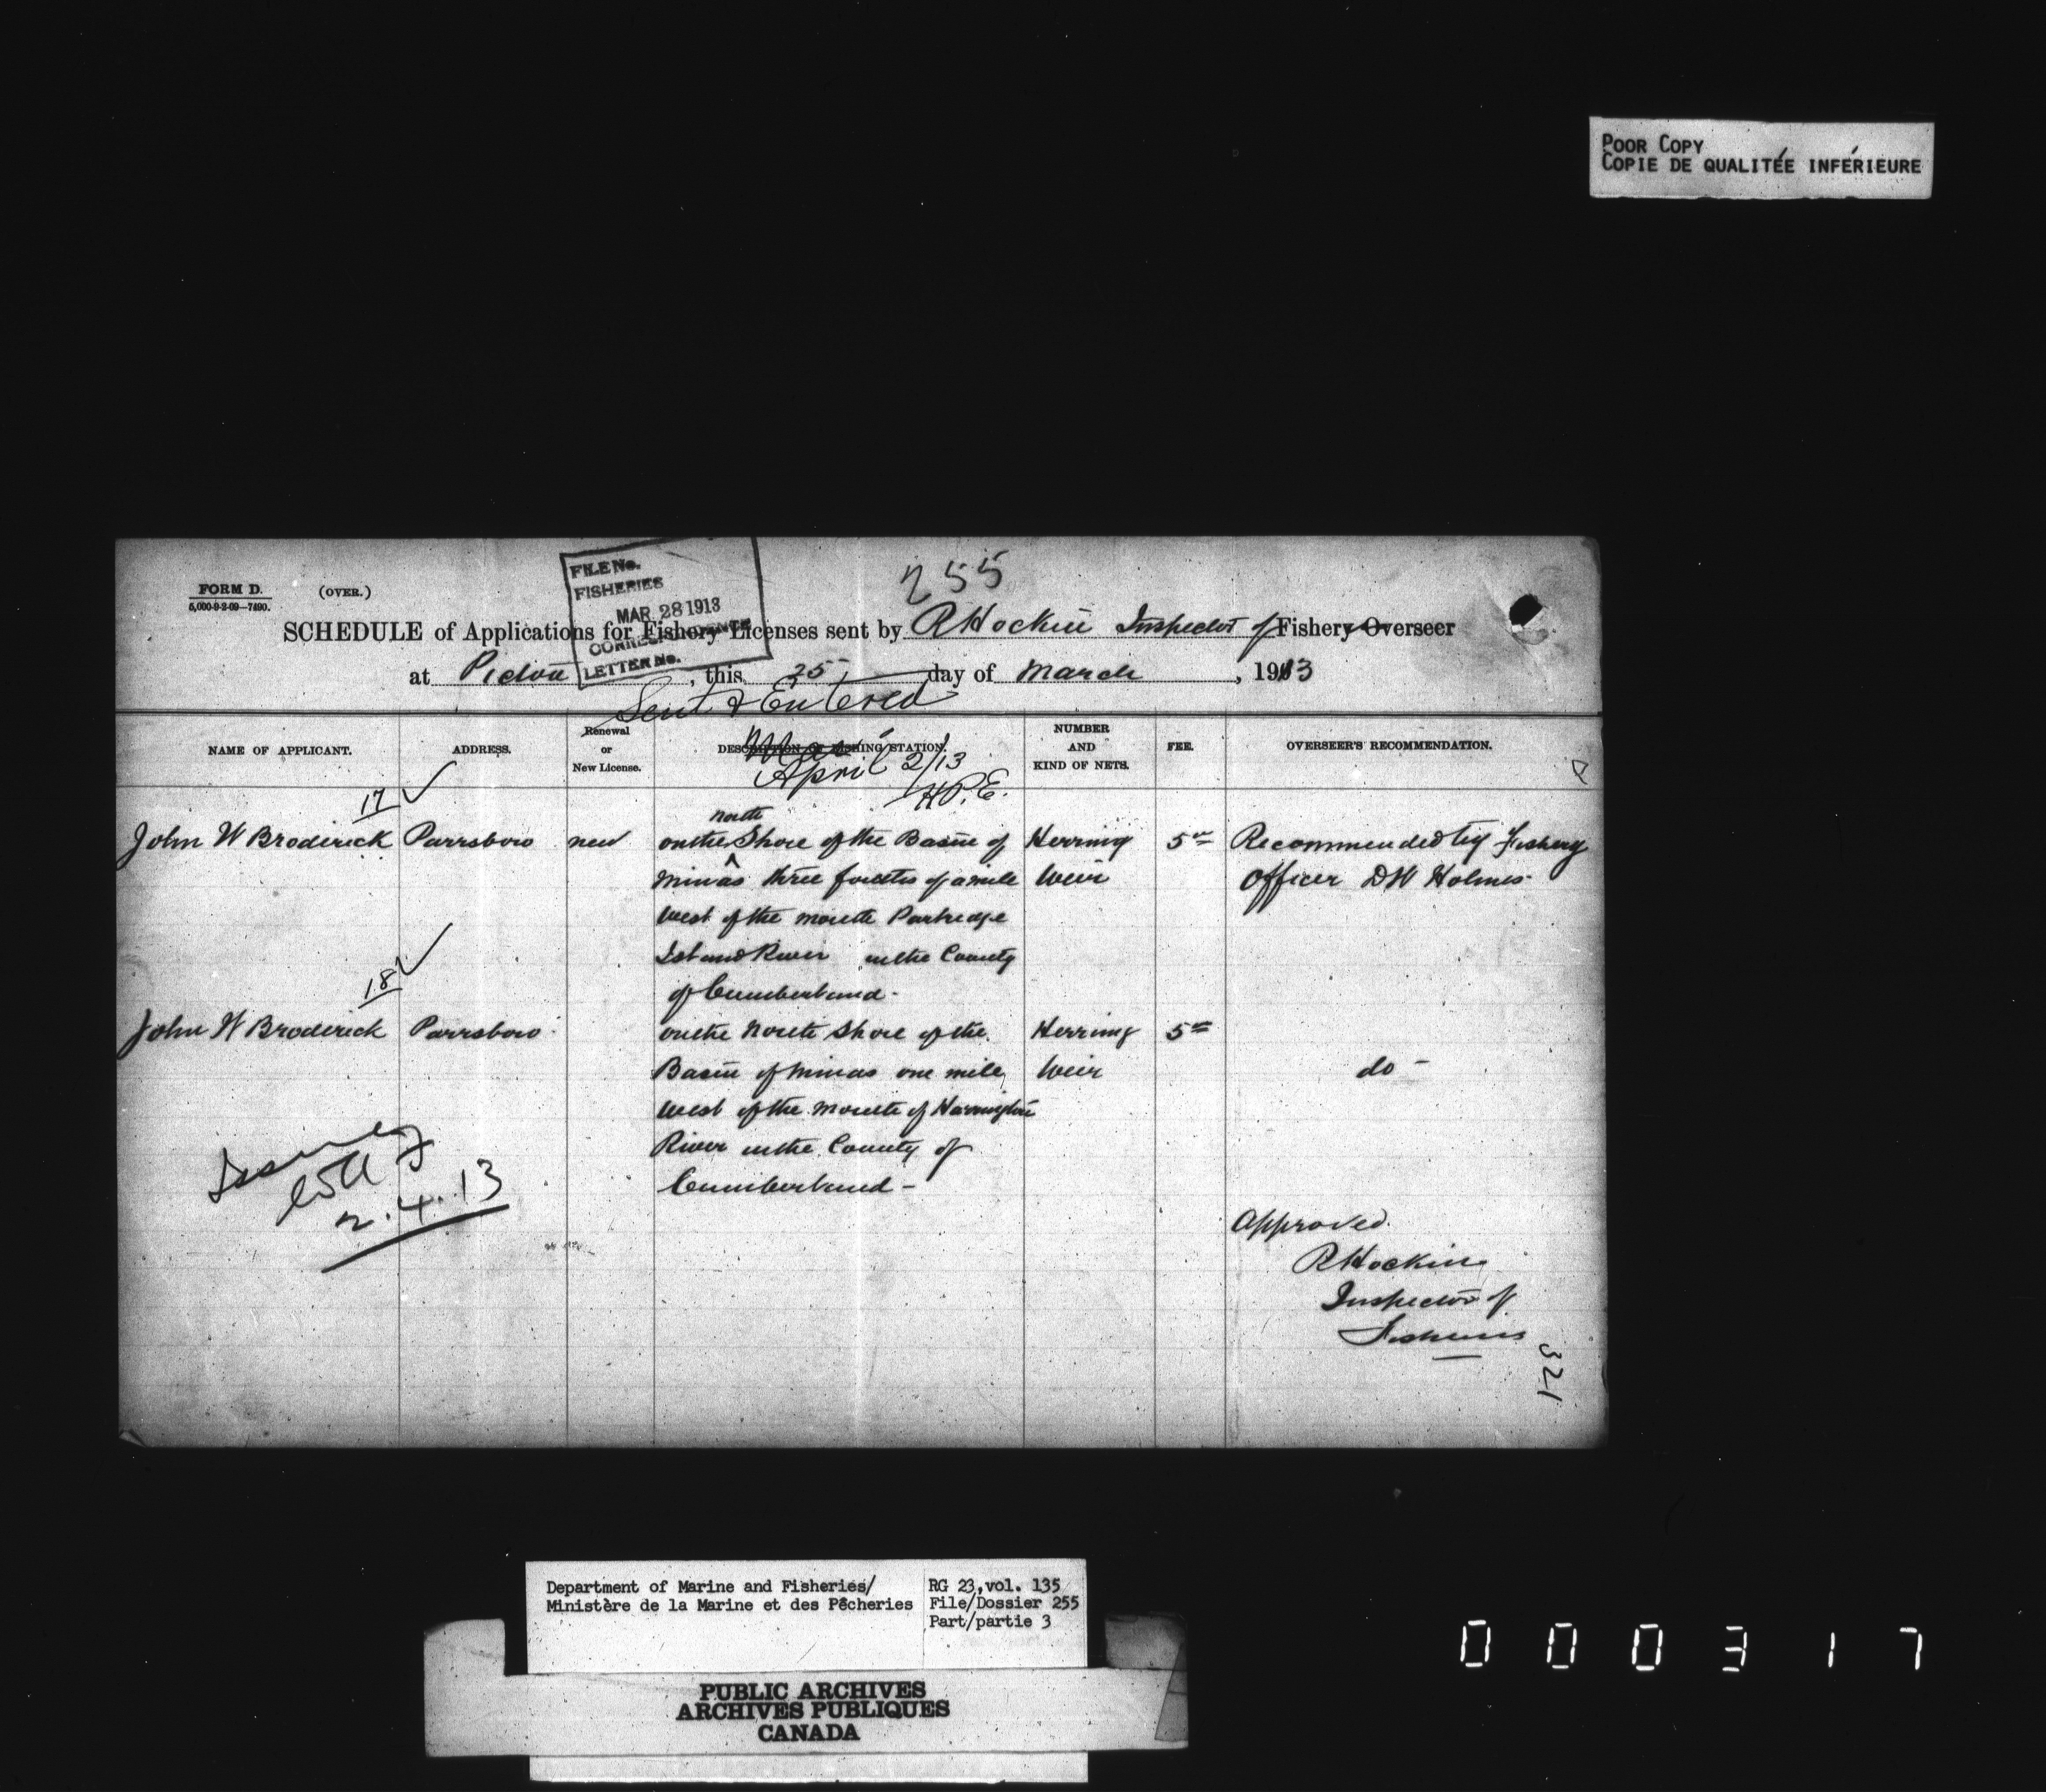 POOR COPY
COPIE DE QUALITÉE INFÉRIEURE
FORM D.
5,000-9-2-09—7490.
(OVER.)
FILE No.
FISHERIES
MAR 28 1913
CORRESPONDENCE
LETTER No.
255
SCHEDULE of Applications for Fishery Licenses sent by R Hockin Inspector of Fishery Overseer
at Pictou, this 25 day of March, 1913
Sent & Entered
NAME OF APPLICANT.
ADDRESS.
Renewal
or
New License.
DESCRIPTION OF FISHING STATION.
NUMBER
AND
KIND OF NETS.
FEE.
OVERSEER'S RECOMMENDATION.
Mar
April 2/13
H.P.E.
17
north
John W Broderick Parrsboro new on the Shore of the Basin of Herring 5 Recommended by Fishery
Minas three fourths of a mile Weir Officer D W Holmes
West of the mouth Partridge
Island River in the County
of Cumberland -
18
John W Broderick Parrsboro on the North Shore of the Herring 5
Basin of Minas one mile Weir do -
West of the Mouth of Harrington
River in the County of
Cumberland -
2.4.13
Approved.
R Hockin
Inspector of
Fisheries
321
Department of Marine and Fisheries/
Ministère de la Marine et des Pêcheries
RG 23, vol. 135
File/Dossier 255
Part/partie 3
PUBLIC ARCHIVES
ARCHIVES PUBLIQUES
CANADA
000317